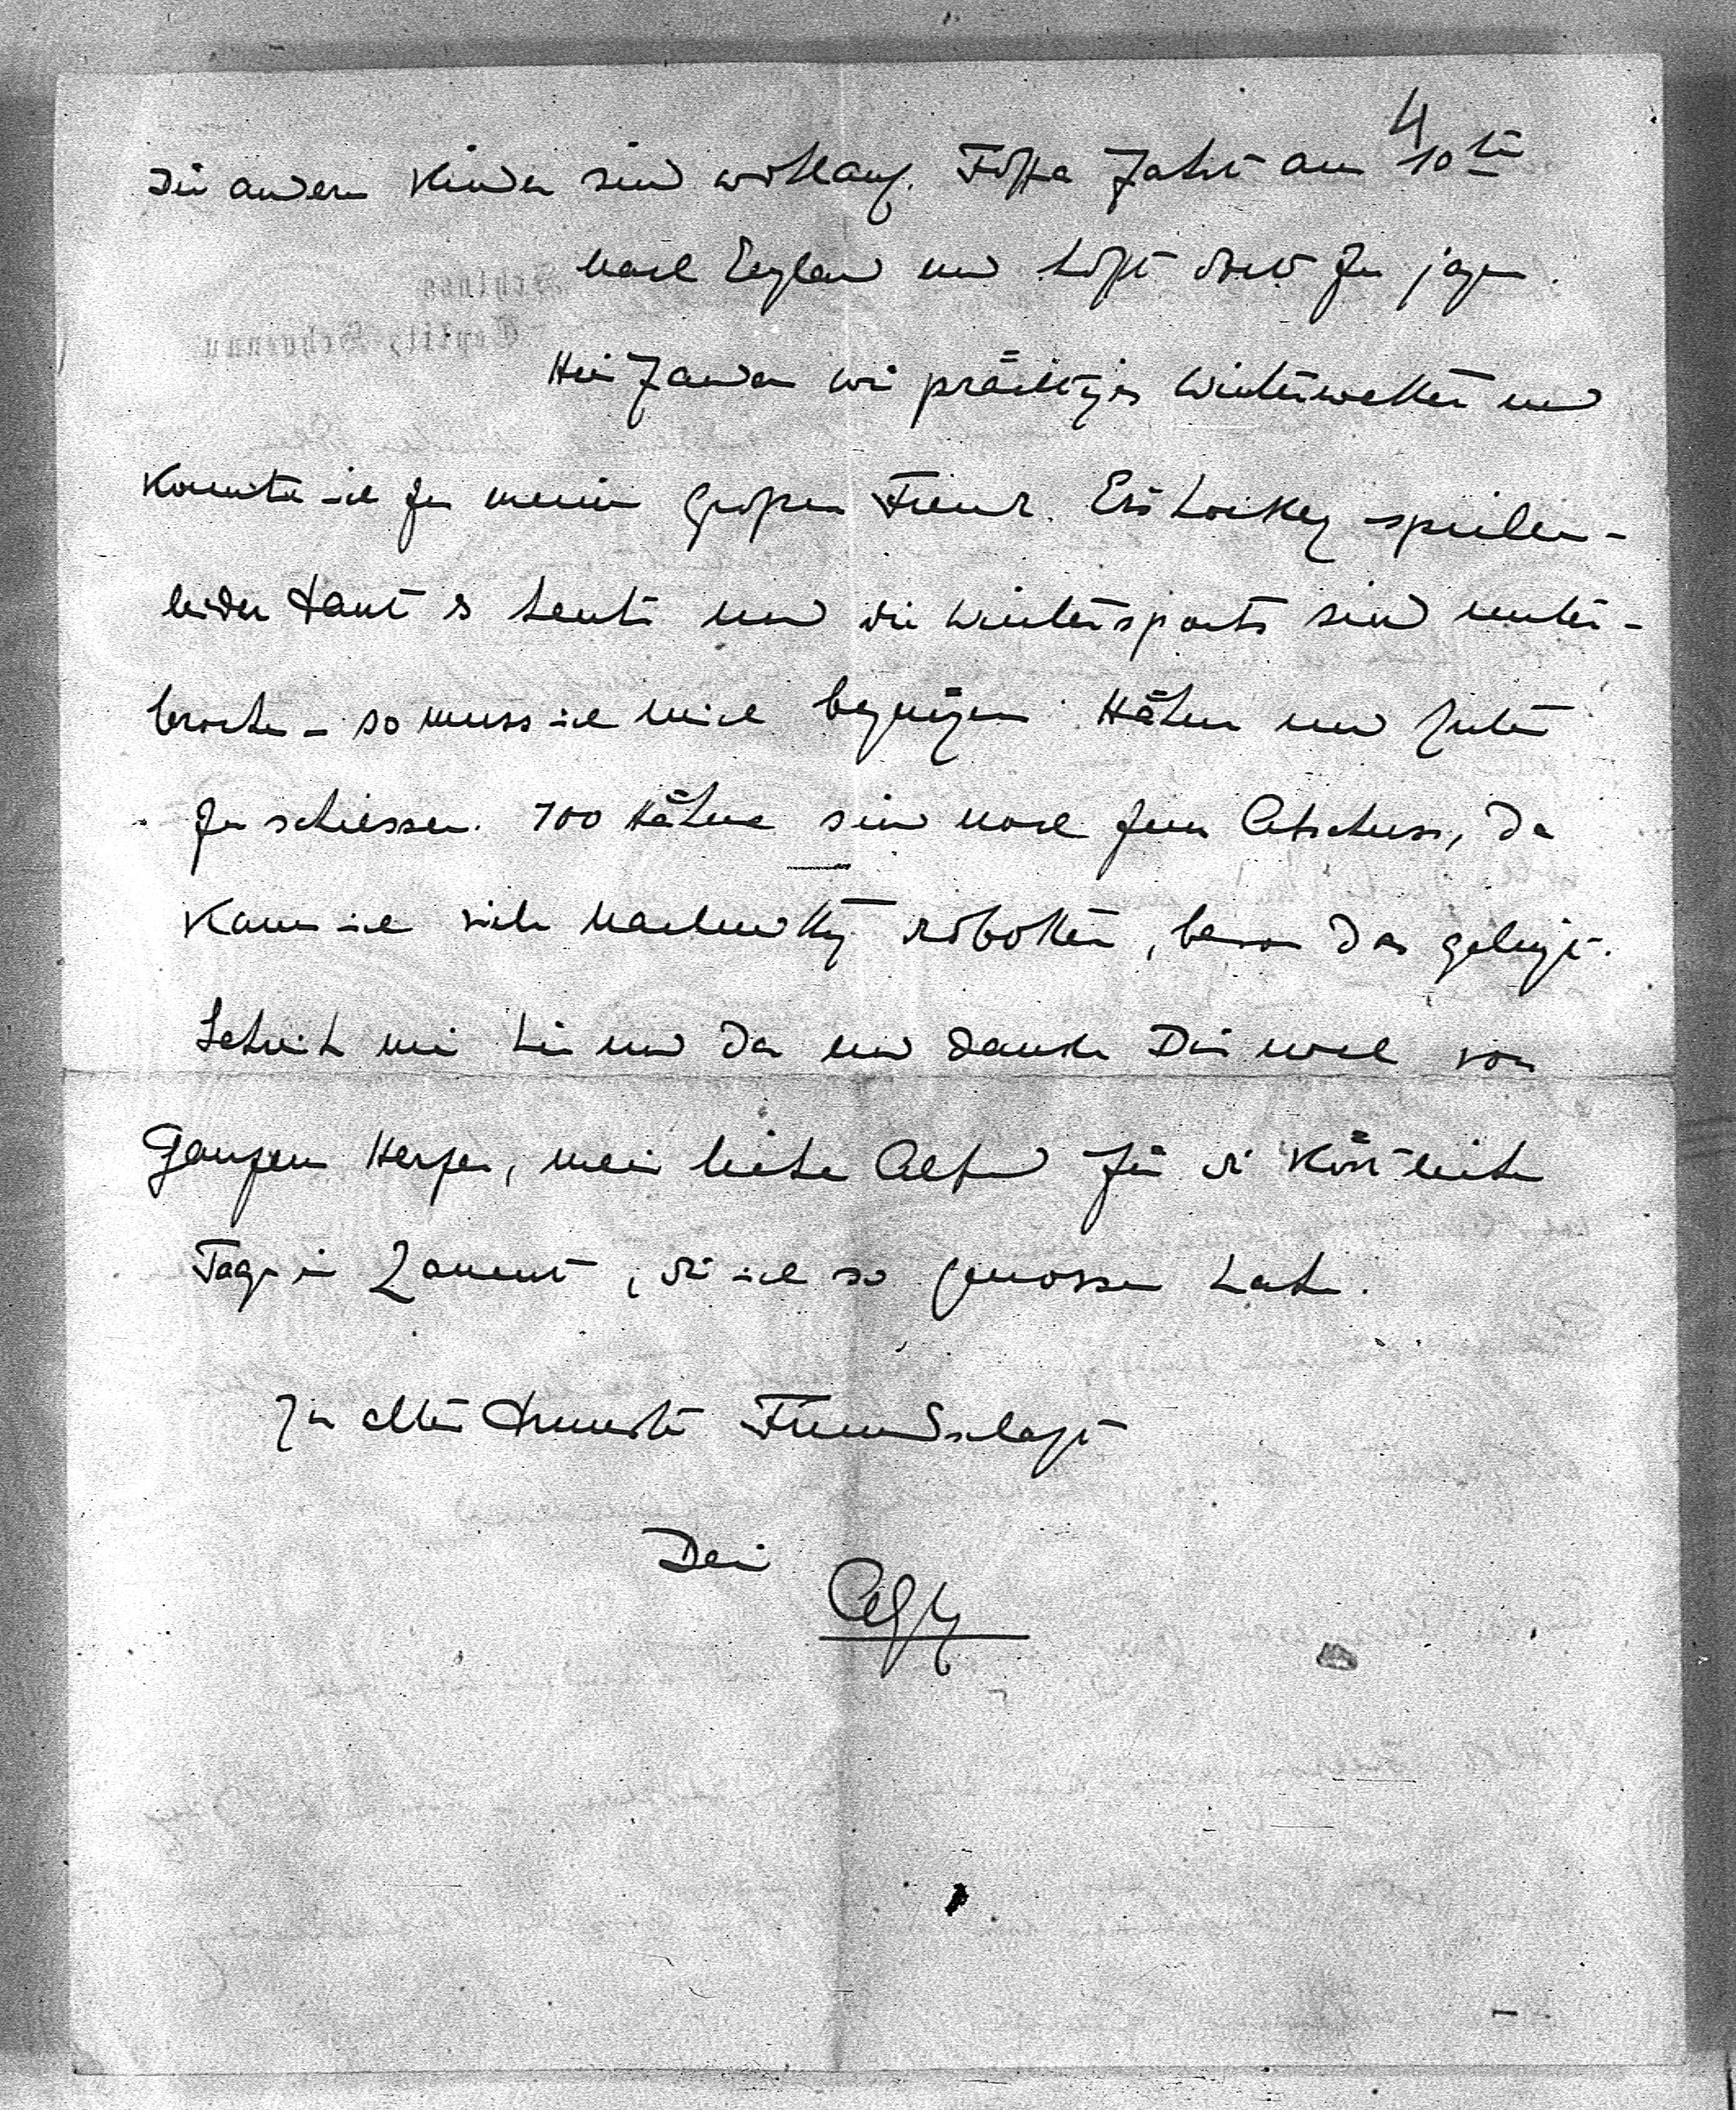 4
Die andern Kinder sind wohlauf. fährt am 10ten
nach England und hofft dort zu jagen.
Hier fanden wir prächtiges Winterwetter und
konnte ich zu meiner großen Freude Eishockey spielen -
leider taut es heute und die Wintersports sind unter-
brochen - so muss ich mich begnügen Hähne und
zu schiessen. 700 Hähne sind noch zum Abschuss, da
kann ich viele Nachmittag roboten, bevor das gelingt.
Schreib mir hin und da und danke Dir noch von
Ganzem Herzen, mein lieber Alfred für die köstlichen
Tage in , die ich so genossen habe.
In alter Freundschaft
Dein
Alfy
Schloss
Teplitz-Schoenau